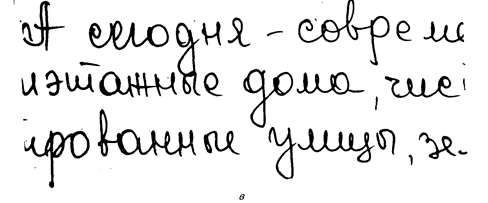 А сегодня - совреме
иэтажные дома, чис
ированные улицы, зе
в